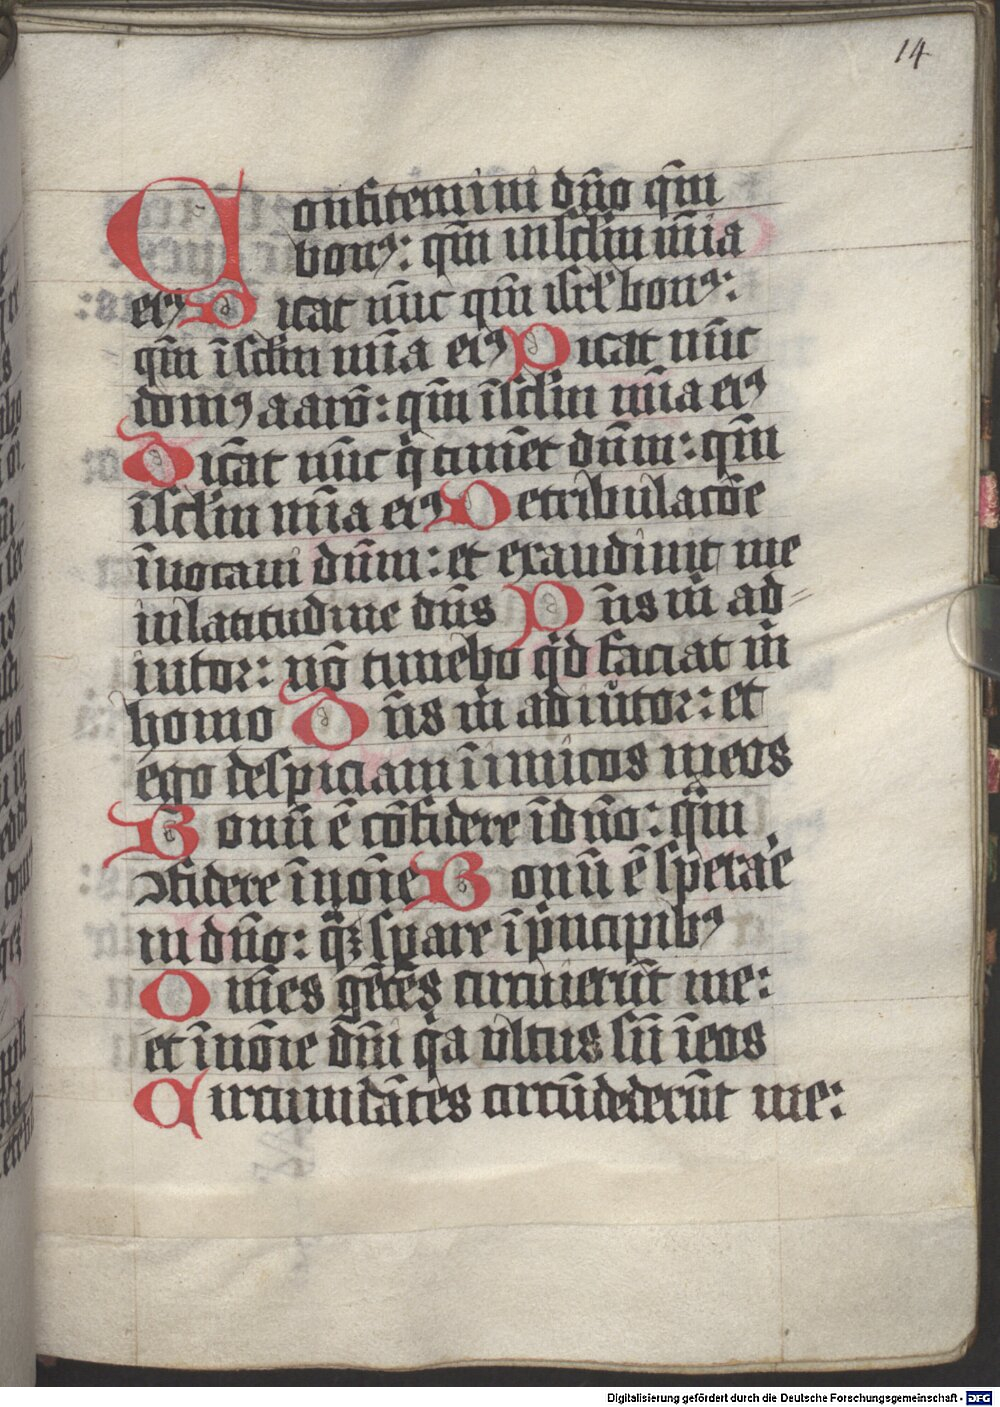 14
Confitemini dño qm̄
bonꝰ: qm̄ in sc̄lm mīa
eiꝰ Dicat nūc qm̄ isrl̄ bonꝰ:
qm̄ ī sc̄lm mīa eiꝰ Dicat nūc
domꝰ aarō: qm̄ ī sc̄lm mīa eiꝰ
Dicāt nūc q̇ timēt dūm: qm̄
ī sc̄lm mīa eiꝰ De tribulacōe
īuocaui dūm: et exaudiuit me
in latitudine dn̄s Dn̄s m̄ ad-
iutor: nō timebo qd̄ faciat m̄
homo Dn̄s m̄ adiutor: et
ego despiciam īimicos meos
Bonū ē cōfidere ī dño: qm̄
ꝯfidere ī hoīe Bonū ē sperare
in dño: qꝫ sꝑare ī pͥncipibꝰ
Omēs gētes circuierūt me:
et ī noīe dn̄i qͥa vltus sū ī eos
Circumdātes circūdederūt me:
Digitalisierung gefördert durch die Deutsche Forschungsgemeinschaft - DFG